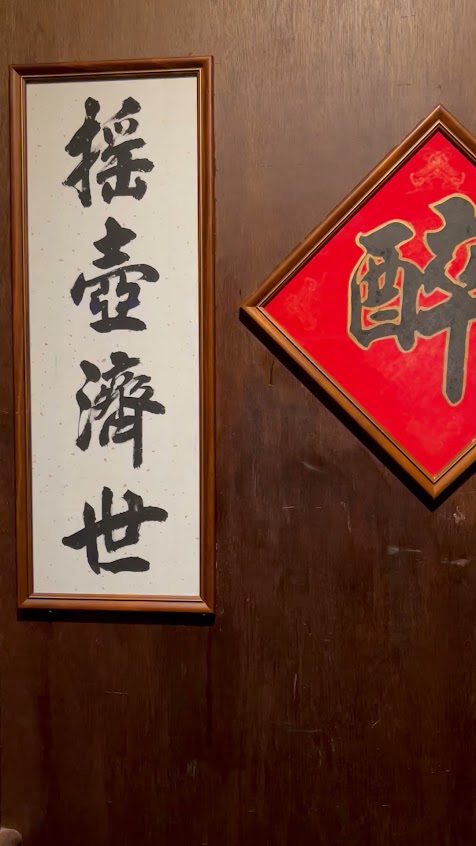 搖壺濟世
醉